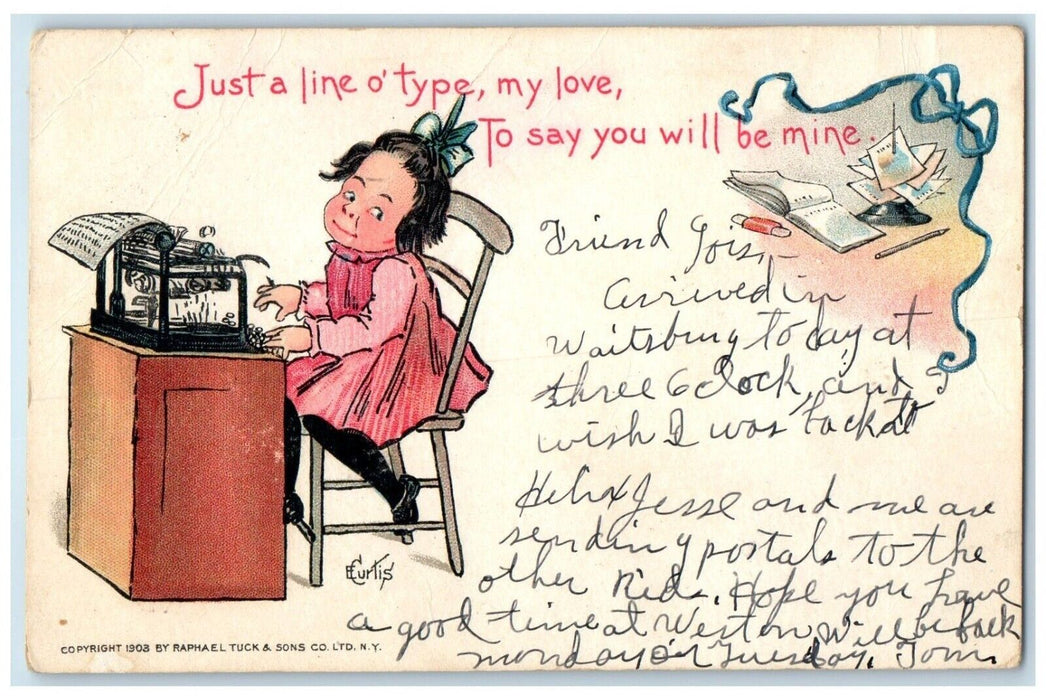 Just a line o' type, my love,
To say you will be mine.
Friend Gois,
Arrived in
Waitsburg today at
three o clock, and I
wish I was back at
Helix Jesse and me are
sending postals to the
other Kids. Hope you have
a good time at Weston Will be back
monday or Tuesday. Tom.
E Curtis
COPYRIGHT 1903 BY RAPHAEL TUCK & SONS CO. LTD. N.Y.